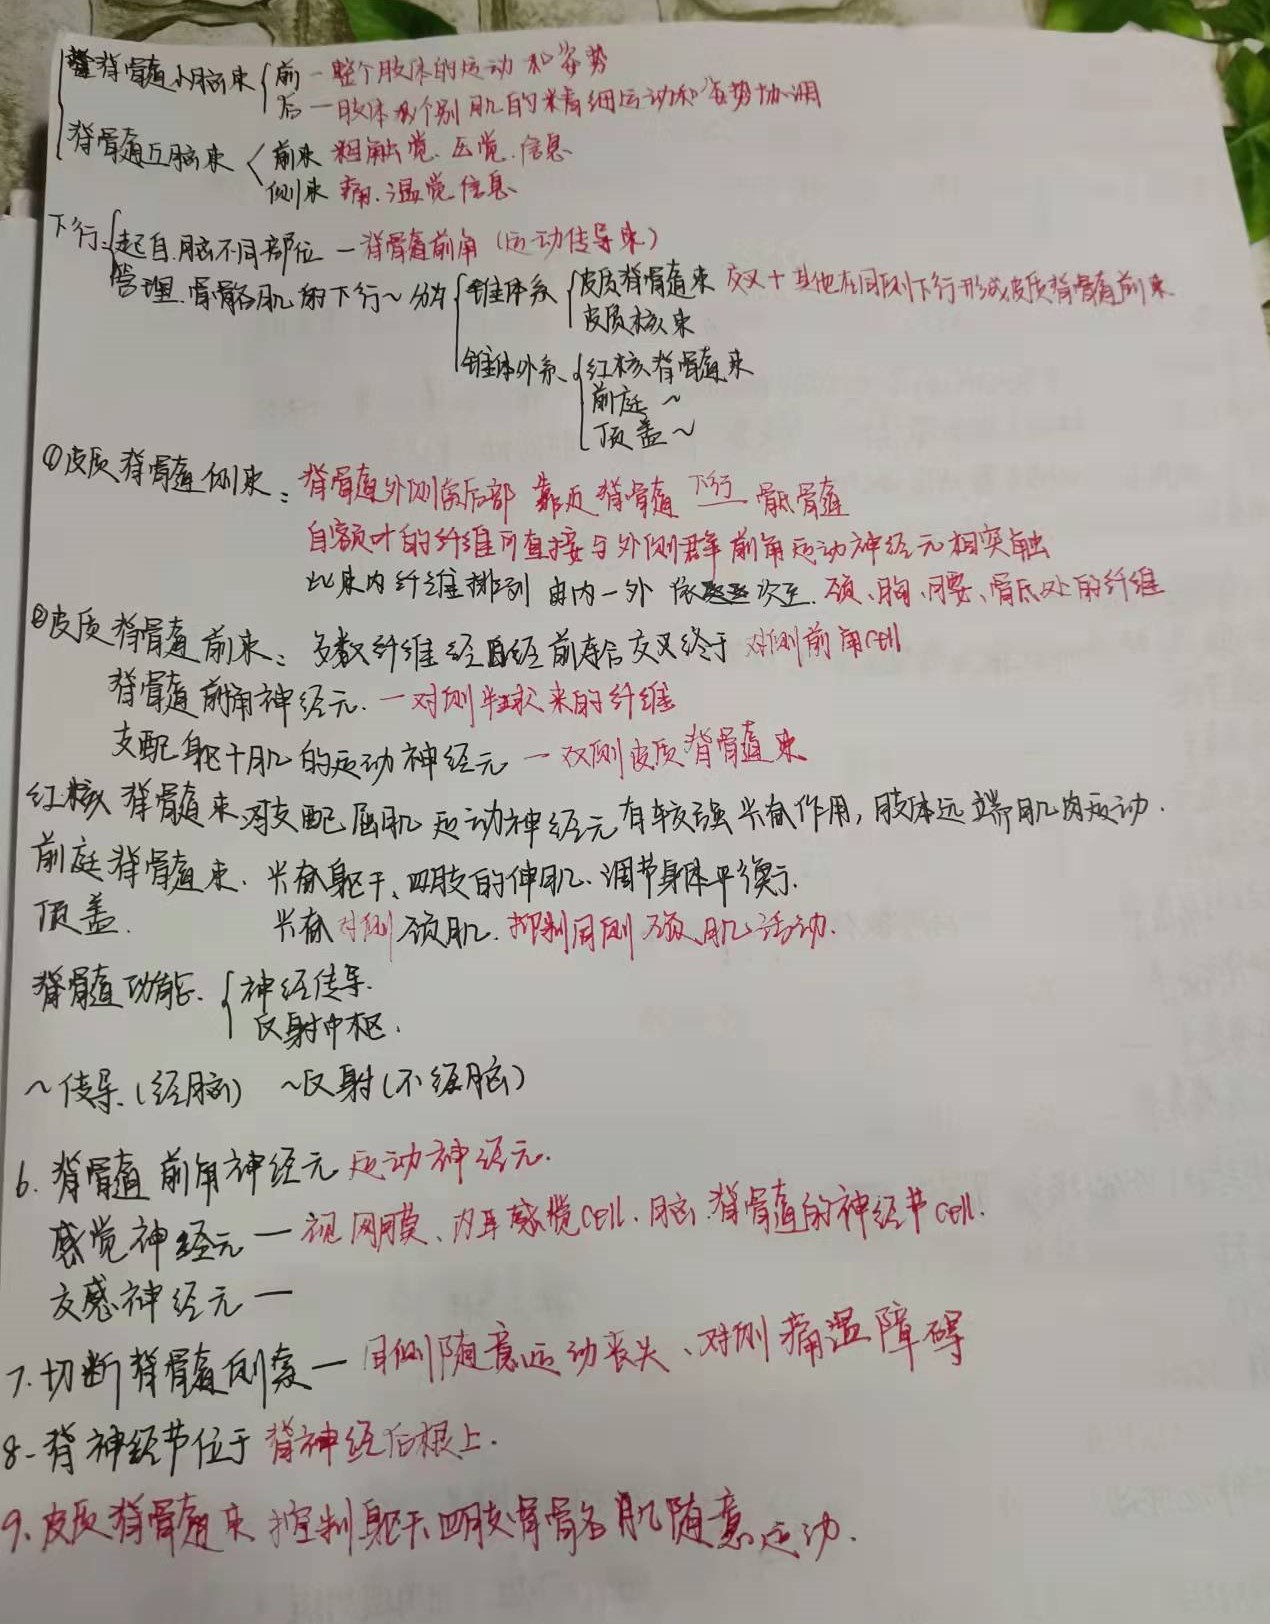 脊髓小脑束 前 — 整个肢体的运动和姿势
后 — 肢体个别肌的精细运动和姿势协调
脊髓丘脑束 前束 粗触觉、压觉、信息
侧束 痛、温觉信息
下行: 起自脑不同部位 — 脊髓前角 (运动传导束)
管理骨骼肌的下行~分为 锥体系 皮质脊髓束 交叉+其他在同侧下行形成皮质脊髓前束
皮质核束
锥体外系 红核脊髓束
前庭~
顶盖~
①皮质脊髓侧束: 脊髓外侧索后部 靠近脊髓 下行 — 骶髓
自额叶的纤维可直接与外侧群前角运动神经元相突触
此束内纤维排列 由内—外 依次至 颈、胸、腰、骶处的纤维
②皮质脊髓前束: 多数纤维经白前连合交叉终于 对侧前角cell
脊髓前角神经元 — 对侧半球来的纤维
支配躯干肌的运动神经元 — 双侧皮质脊髓束
红核脊髓束 对支配屈肌运动神经元有较强兴奋作用, 肢体远端肌肉运动.
前庭脊髓束. 兴奋躯干、四肢的伸肌、调节身体平衡.
顶盖. 兴奋对侧颈肌. 抑制同侧颈肌活动.
脊髓功能. 神经传导.
反射中枢.
~传导. (经脑) ~反射 (不经脑)
6. 脊髓前角神经元 运动神经元.
感觉神经元 — 视网膜、内耳感觉cell. 脑.脊髓的神经节cell.
交感神经元 —
7. 切断脊髓侧索 — 同侧随意运动丧失、对侧痛温障碍
8- 脊神经节位于 脊神经后根上.
9. 皮质脊髓束 控制躯干、四肢骨骼肌随意运动.